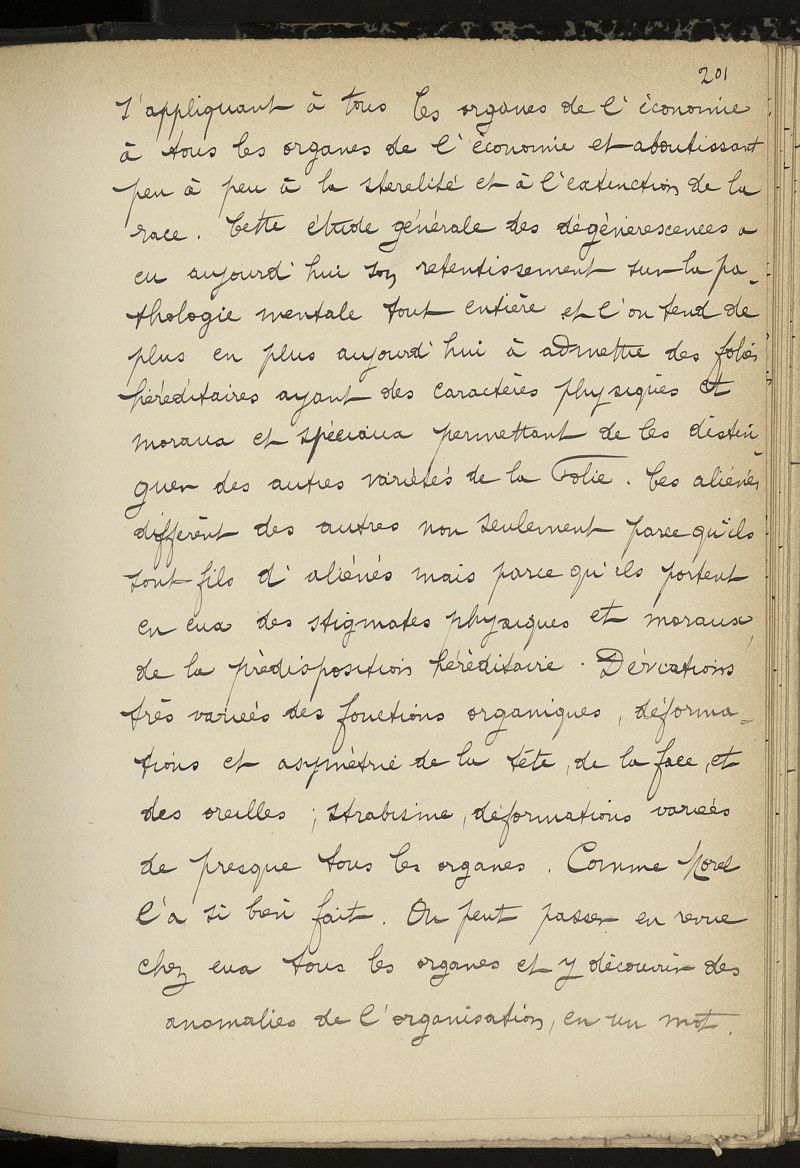 201
s'appliquant à tous les organes de l'économie
à tous les organes de l'économie et aboutissant
peu à peu à la sterelité et à l'extinction de la
race. Cette étude générale des dégénerescences a
eu aujourd'hui son retentissement sur la pa-
thologie mentale tout entière et l'on tend de
plus en plus aujourd'hui à admettre des folies
héréditaires ayant des caractères physiques et
moraux et spéciaux permettant de les distin-
guer des autres variétés de la Folie. Ces aliénés
diffèrent des autres non seulement parce qu'ils
sont fils d'aliénés mais parce qu'ils portent
en eux des stigmates physiques et moraux,
de la prédisposition héréditaire. Déviations
très variées des fonctions organiques, déforma-
tions et asymétrie de la tête, de la face, et
des oreilles ; strabisme, déformations variées
de presque tous les organes. Comme Morel
l'a si bien fait. On peut passer en revue
chez eux tous les organes et y découvrir des
anomalies de l'organisation, en un mot.